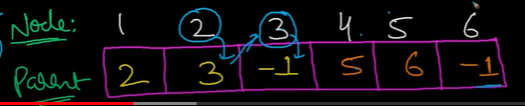 Node: 1 2 3 4 5 6
Parent 2 3 -1 5 6 -1